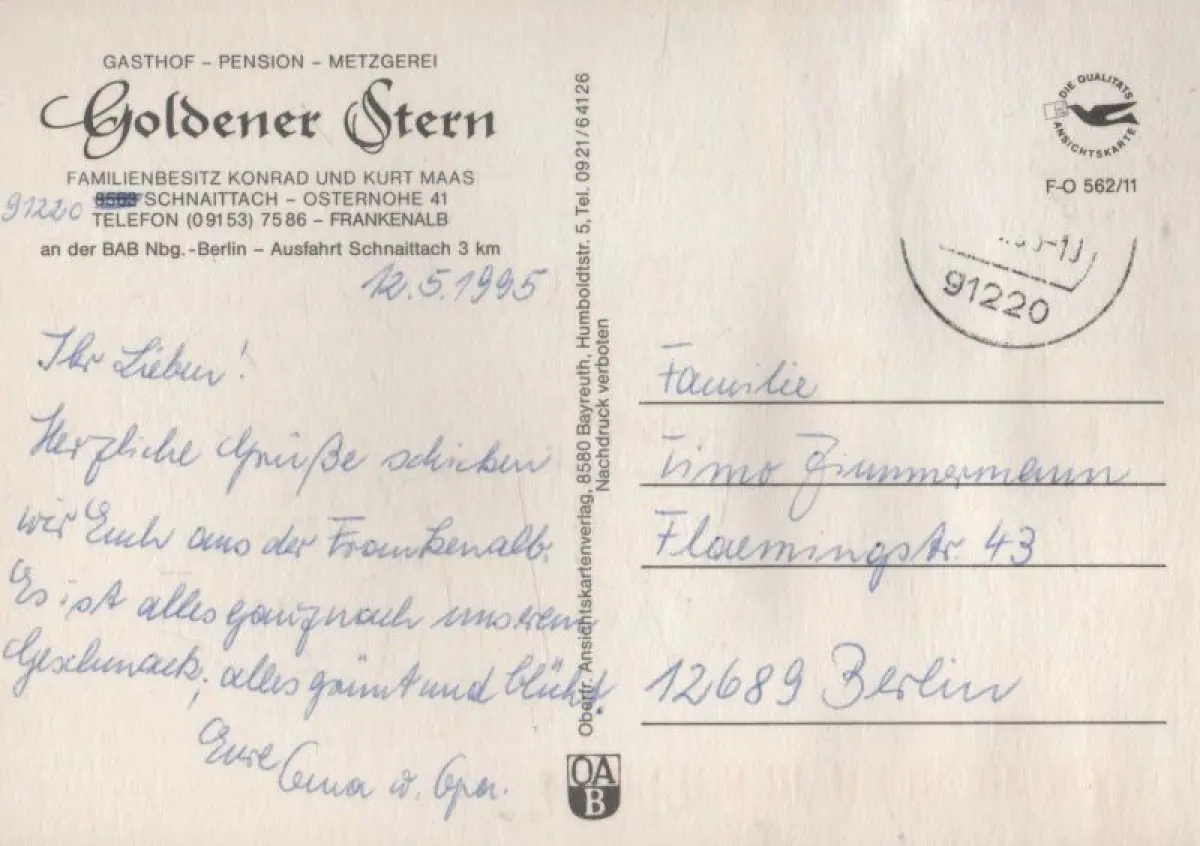 GASTHOF – PENSION – METZGEREI
Goldener Stern
FAMILIENBESITZ KONRAD UND KURT MAAS
91220 8563 SCHNAITTACH – OSTERNOHE 41
TELEFON (09153) 7586 – FRANKENALB
an der BAB Nbg.-Berlin – Ausfahrt Schnaittach 3 km
12.5.1995
Ihr Lieben!
Herzliche Grüße schicken
wir Euch aus der Frankenalb.
Es ist alles ganz nach unserem
Geschmack; alles grünt und blüht.
Eure Oma u. Opa.
Oberfr. Ansichtskartenverlag, 8580 Bayreuth, Humboldtstr. 5, Tel. 0921/64126
Nachdruck verboten
OA
B
DIE QUALITÄTS
ANSICHTSKARTE
F-O 562/11
91220
Familie
Timo Zimmermann
Flaemingstr. 43
12689 Berlin